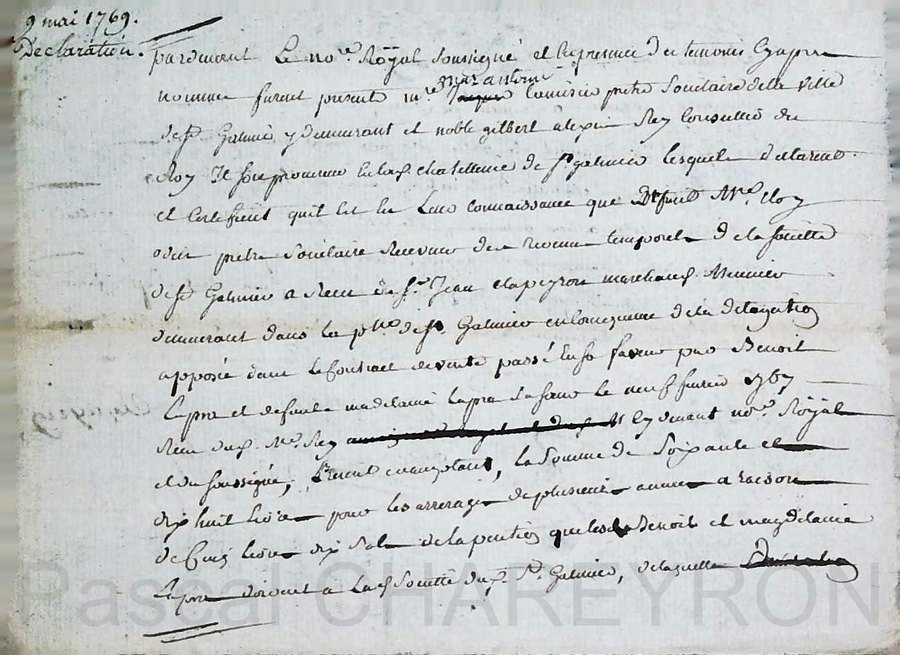 9 mai 1769.
Declaration.
pardevant Le no.re Royal soussigné et En presence des temoins Cy apres
nommes furent presents m.re marc antoine prêtre Societaire de la Ville
de S.t Galmier y demeurant et noble gilbert alexis Rey Conseiller du
Roy en la chatellenie de S.t galmier lesquels declarent
et Certifient quil est de Leur connaissance que Deffunt M.re Eloy
odin pretre Societaire Receveur des revenus temporels de la Societté
de S.t Galmier a Receu de S.r Jean Clapeyron marchand Meunier
demeurant dans la p.sse de S.t Galmier en consequence de la delegation
apposée dans Le Contract de vente passé en sa faveur par Benoit
Lapra et defunte madelaine Lapra sa sœur le neuf fevrier 1767
Receu dud. M.e Rey cy devant no.re Royal
et du soussigné, la Somme de Soixante et
dix huit livres pour les arrerages de plusieurs années a raison
de Cinq livres dix Sols de la pention que lesd. Benoit et magdelaine
Lapra doivent a Lad. Societté dud. S.t Galmier, de laquelle
Pascal CHAREYRON